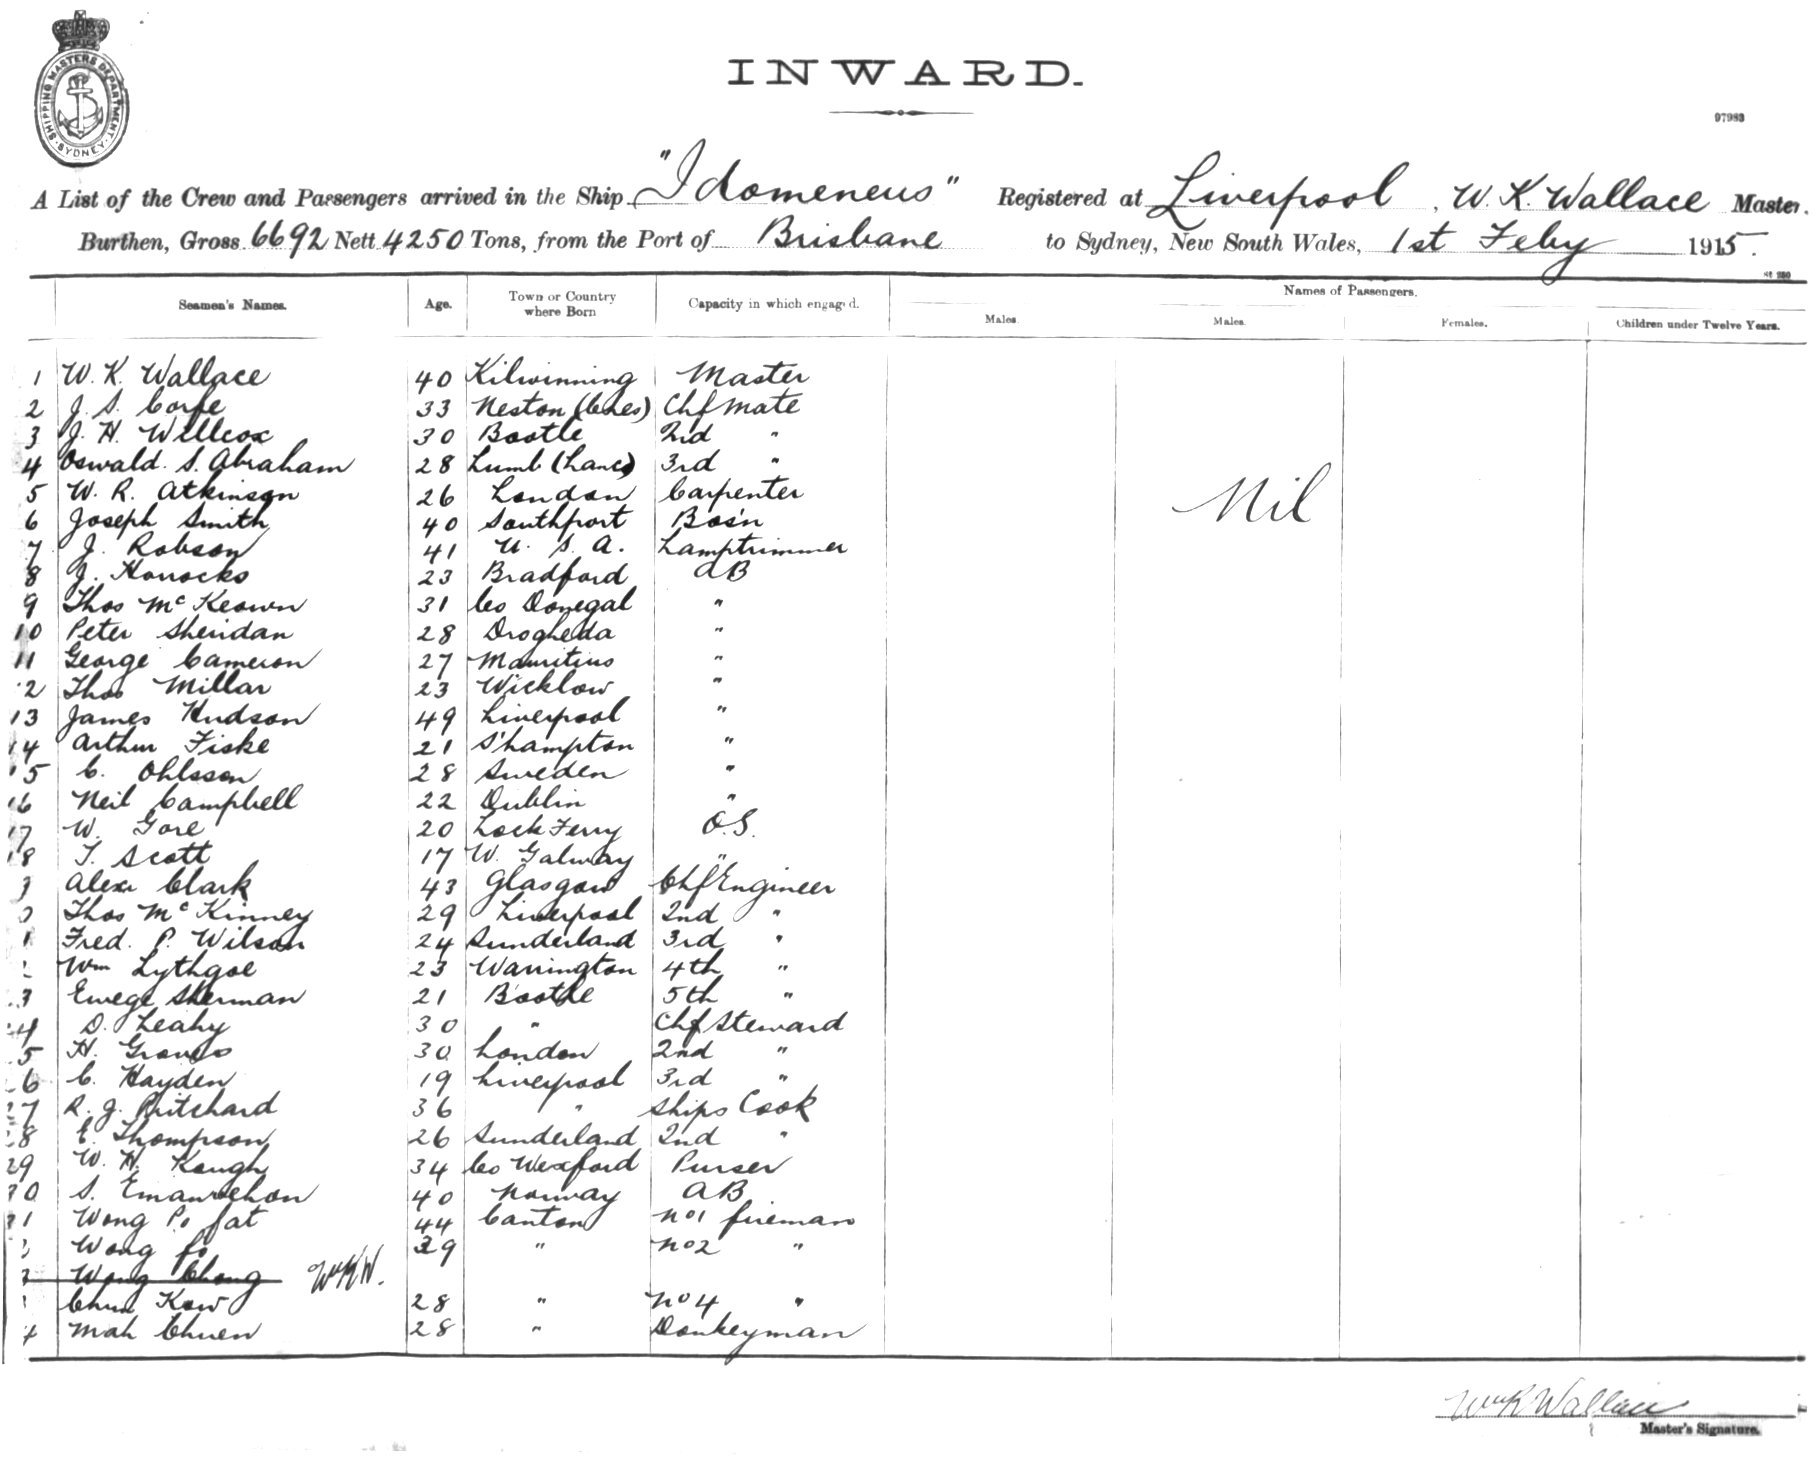 SHIPPING MASTERS DEPARTMENT
SYDNEY
INWARD.
97983
A List of the Crew and Passengers arrived in the Ship "Idomeneus" Registered at Liverpool, W. K. Wallace Master.
Burthen, Gross 6692 Nett 4250 Tons, from the Port of Brisbane to Sydney, New South Wales, 1st Feby 1915.
st 280
Seamen's Names. Age. Town or Country where Born Capacity in which engaged. Names of Passengers.
Males. Males. Females. Children under Twelve Years.
1 W. K. Wallace 40 Kilwinning Master
2 J. S. Corfe 33 Neston (Ches) Chf Mate
3 J. H. Willcox 30 Bootle 2nd "
4 Oswald. S. Abraham 28 Lumb (Lancs) 3rd "
5 W. R. Atkinson 26 London Carpenter
Nil
6 Joseph Smith 40 Southport Bos'n
7 J. Robson 41 U. S. A. Lamptrimmer
8 J. Horrocks 23 Bradford AB
9 Thos McKeown 31 Co Donegal "
10 Peter Sheridan 28 Drogheda "
11 George Cameron 27 Mauritius "
2 Thos Millar 23 Wicklow "
13 James Hudson 49 Liverpool "
14 Arthur Fiske 21 S'hampton "
15 C. Ohlsson 28 Sweden "
16 Neil Campbell 22 Dublin "
17 W. Gore 20 Lock Ferry O.S.
18 T. Scott 17 W. Galway "
Alexr Clark 43 Glasgow Chf Engineer
Thos McKinney 29 Liverpool 2nd "
1 Fred. P. Wilson 24 Sunderland 3rd "
Wm Lythgoe 23 Warrington 4th "
3 Sherman 21 Bootle 5th "
4 D. Leahy 30 " Chf Steward
5 H. Groves 30 London 2nd "
6 C. Hayden 19 Liverpool 3rd "
27 R. J. Pritchard 36 " Ships Cook
28 E. Thompson 26 Sunderland 2nd "
29 W. H. Keough 34 Co Wexford Purser
30 S. 40 Norway AB
31 Wong Po fat 44 Canton No1 fireman
Wong fo 39 " No2 "
Wong Chong WmKW.
Chun Kow 28 " No 4 "
4 Mah Chuen 28 " Donkeyman
WmK Wallace
Master's Signature.